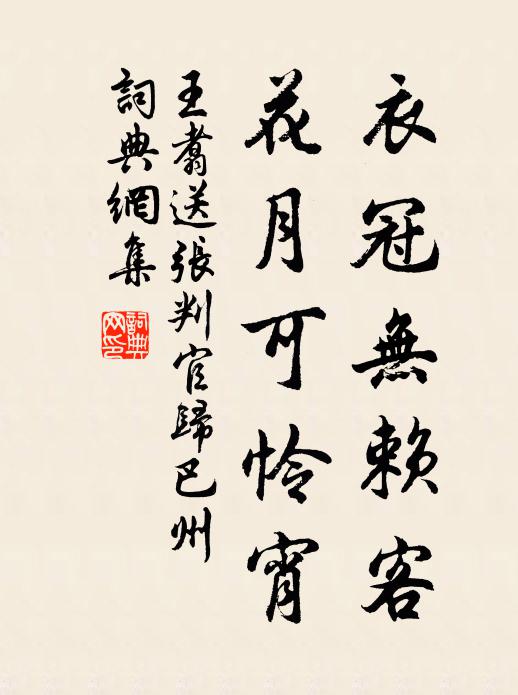 衣冠無賴客
花月可怜宵
王翥送張判官歸巴州
詞典網集
詞典网印